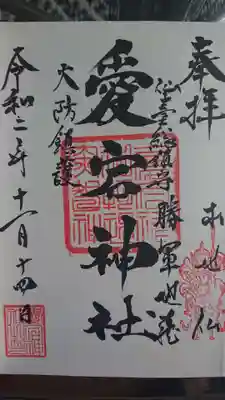 奉拝
本地仏
仙臺総鎮守 勝軍地蔵
愛宕神社
火防鎮護
令和二年十一月十四日